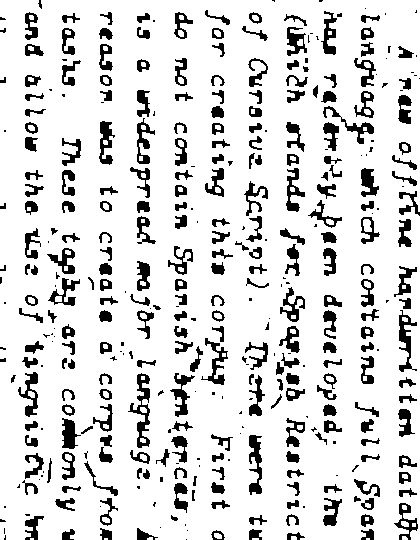 A new offline handwritten
language, which contains full
has recently been developed: the
(which stands for Spanish
of Cursive Script). There were
for creating this corpus. First
do not contain Spanish sentences,
is a widespread major language.
reason was to create a corpus
tasks. These tasks are commonly
and allow the use of linguistic